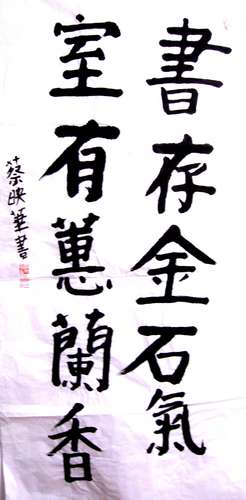 書存金石氣
室有蕙蘭香
蔡映華書